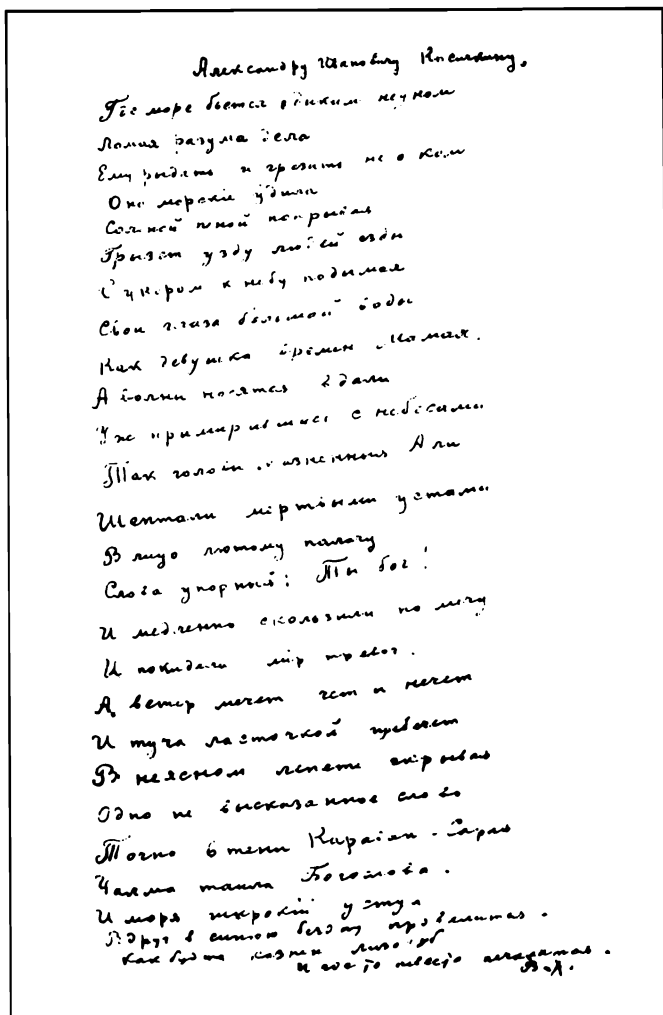 Александру Ивановичу Косичкину.
Где море бьется диким неуком
Ломая разума дела
Ему рыдать и грезить не о ком
Оно морские удила
Соленой пеной покрывая
Грызет узду людей езды
С укором к небу подымая
Свои глаза большой воды
Как девушка времен Мамая.
А волны носятся вдали
Уже примирившись с небесами
Так головы казненных Али
Шептали мертвыми устами
В лицо лютому палачу
Слова упорныя: Ты бог!
И медленно скользили по мечу
И покидали мір тревог.
А ветер мечет чет и нечет
И туча ласточкой щебечет
В неясном лепете скрывая
Одно не высказанное слово
Точно в тени Караван-Сарая
Чалма таила Боголова.
И моря широкій уступ
Вдруг в синюю бездну провалится.
Как будто казнен
И где то печалится.